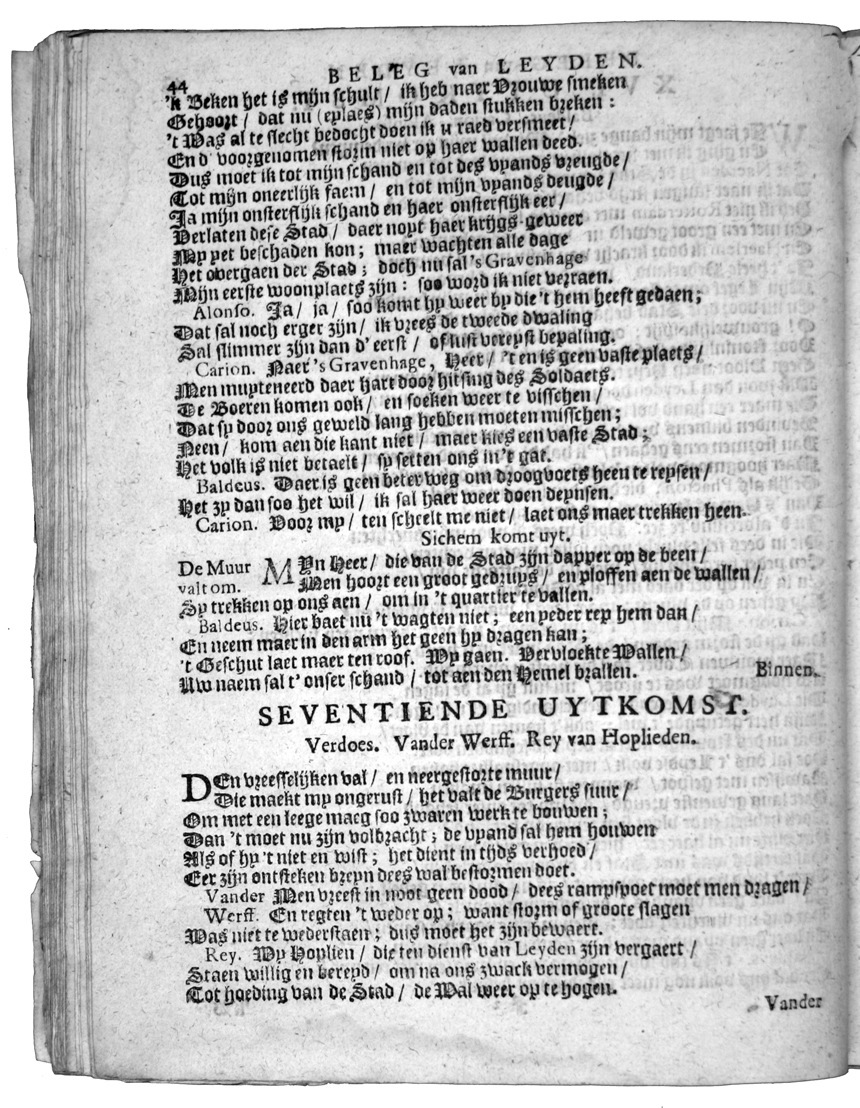 44
BELEG van LEYDEN.
'k Beken het is mijn schult / ik heb naer Vrouwe smeken
Gehoort / dat nu (eplaes) mijn daden stukken breken :
't Was al te slecht bedocht doen ik u raed versmeet /
En d' voorgenomen storm niet op haer wallen deed.
Dus moet ik tot mijn schand en tot des vyands vreugde /
Tot mijn oneerlijk faem / en tot mijn vyands deugde /
Ja mijn onsterflijk schand en haer onsterflijk eer /
Verlaten dese Stad / daer nopt haer krijgs-geweer
My yet beschaden kon ; maer wachten alle dage
Het overgaen der Stad ; doch nu sal 's Gravenhage
Mijn eerste woonplaets zijn : soo word ik niet verraen.
Alonso. Ja / ja / soo komt hy weer by die 't hem heeft gedaen ;
Dat sal noch erger zijn / ik vrees de tweede dwaling
Sal slimmer zijn dan d' eerst / of lust vereyst bepaling.
Carion. Naer 's Gravenhage, Heer / 't en is geen vaste plaets /
Men muyteneerd daer hart door hitsing des Soldaets.
De Boeren komen ook / en soeken weer te visschen /
Dat sy door ons geweld lang hebben moeten misschen ;
Neen / kom aen die kant niet / maer kies een vaste Stad ;
Het volk is niet betaelt / sy setten ons in 't gat.
Baldeus. Daer is geen beter weg om droogvoets heen te reysen /
Het zy dan soo het wil / ik sal haer weer doen deynsen.
Carion. Voor my / ten scheelt me niet / laet ons maer trekken heen.
Sichem komt uyt.
De Muur valt om.
MYn Heer / die van de Stad zijn dapper op de been /
Men hoort een groot gedruys / en ploffen aen de wallen /
Sy trekken op ons aen / om in 't quartier te vallen.
Baldeus. Hier baet nu 't wagten niet ; een yeder rep hem dan /
En neem maer in den arm het geen hy dragen kan ;
't Geschut laet maer ten roof. Wy gaen. Vervloekte Wallen /
Uw naem sal t' onser schand / tot aen den Hemel brallen.
Binnen.
SEVENTIENDE UYTKOMST.
Verdoes. Vander Werff. Rey van Hoplieden.
DEn vreesselijken val / en neergestorte muur /
Die maekt my ongerust / het valt de Burgers suur /
Om met een leege maeg soo zwaren werk te bouwen ;
Dan 't moet nu zijn volbracht ; de vyand sal hem houwen
Als of hy 't niet en wist ; het dient in tijds verhoed /
Eer zijn ontsteken breyn dees wal bestormen doet.
Vander Men vreest in noot geen dood / dees rampspoet moet men dragen /
Werff. En regten 't weder op ; want storm of groote slagen
Was niet te wederstaen ; dus moet het zijn bewaert.
Rey. Wy Hoplien / die ten dienst van Leyden zijn vergaert /
Staen willig en bereyd / om na ons zwack vermogen /
Tot hoeding van de Stad / de Wal weer op te hogen.
Vander